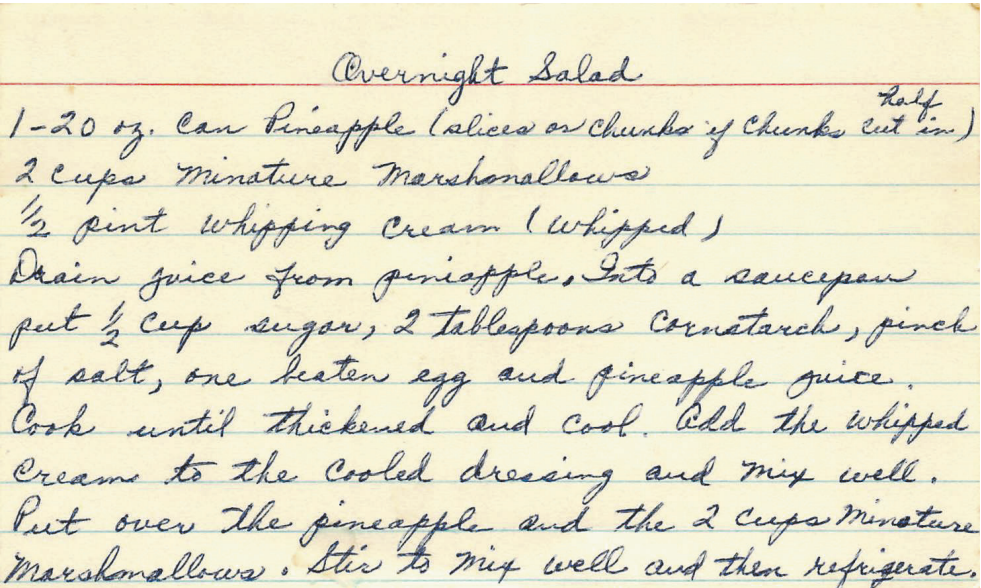 Overnight Salad
half
1-20 oz. Can Pineapple (slices or Chunks if Chunks cut in)
2 Cups Minature Marshmallows
1/2 pint whipping Cream (Whipped)
Drain juice from pineapple. Into a saucepan
put 1/2 Cup sugar, 2 tablespoons Cornstarch, pinch
of salt, one beaten egg and pineapple juice.
Cook until thickened and cool. Add the whipped
Cream to the Cooled dressing and Mix well.
Put over the pineapple and the 2 Cups Minature
Marshmallows. Stir to Mix well and then refrigerate.